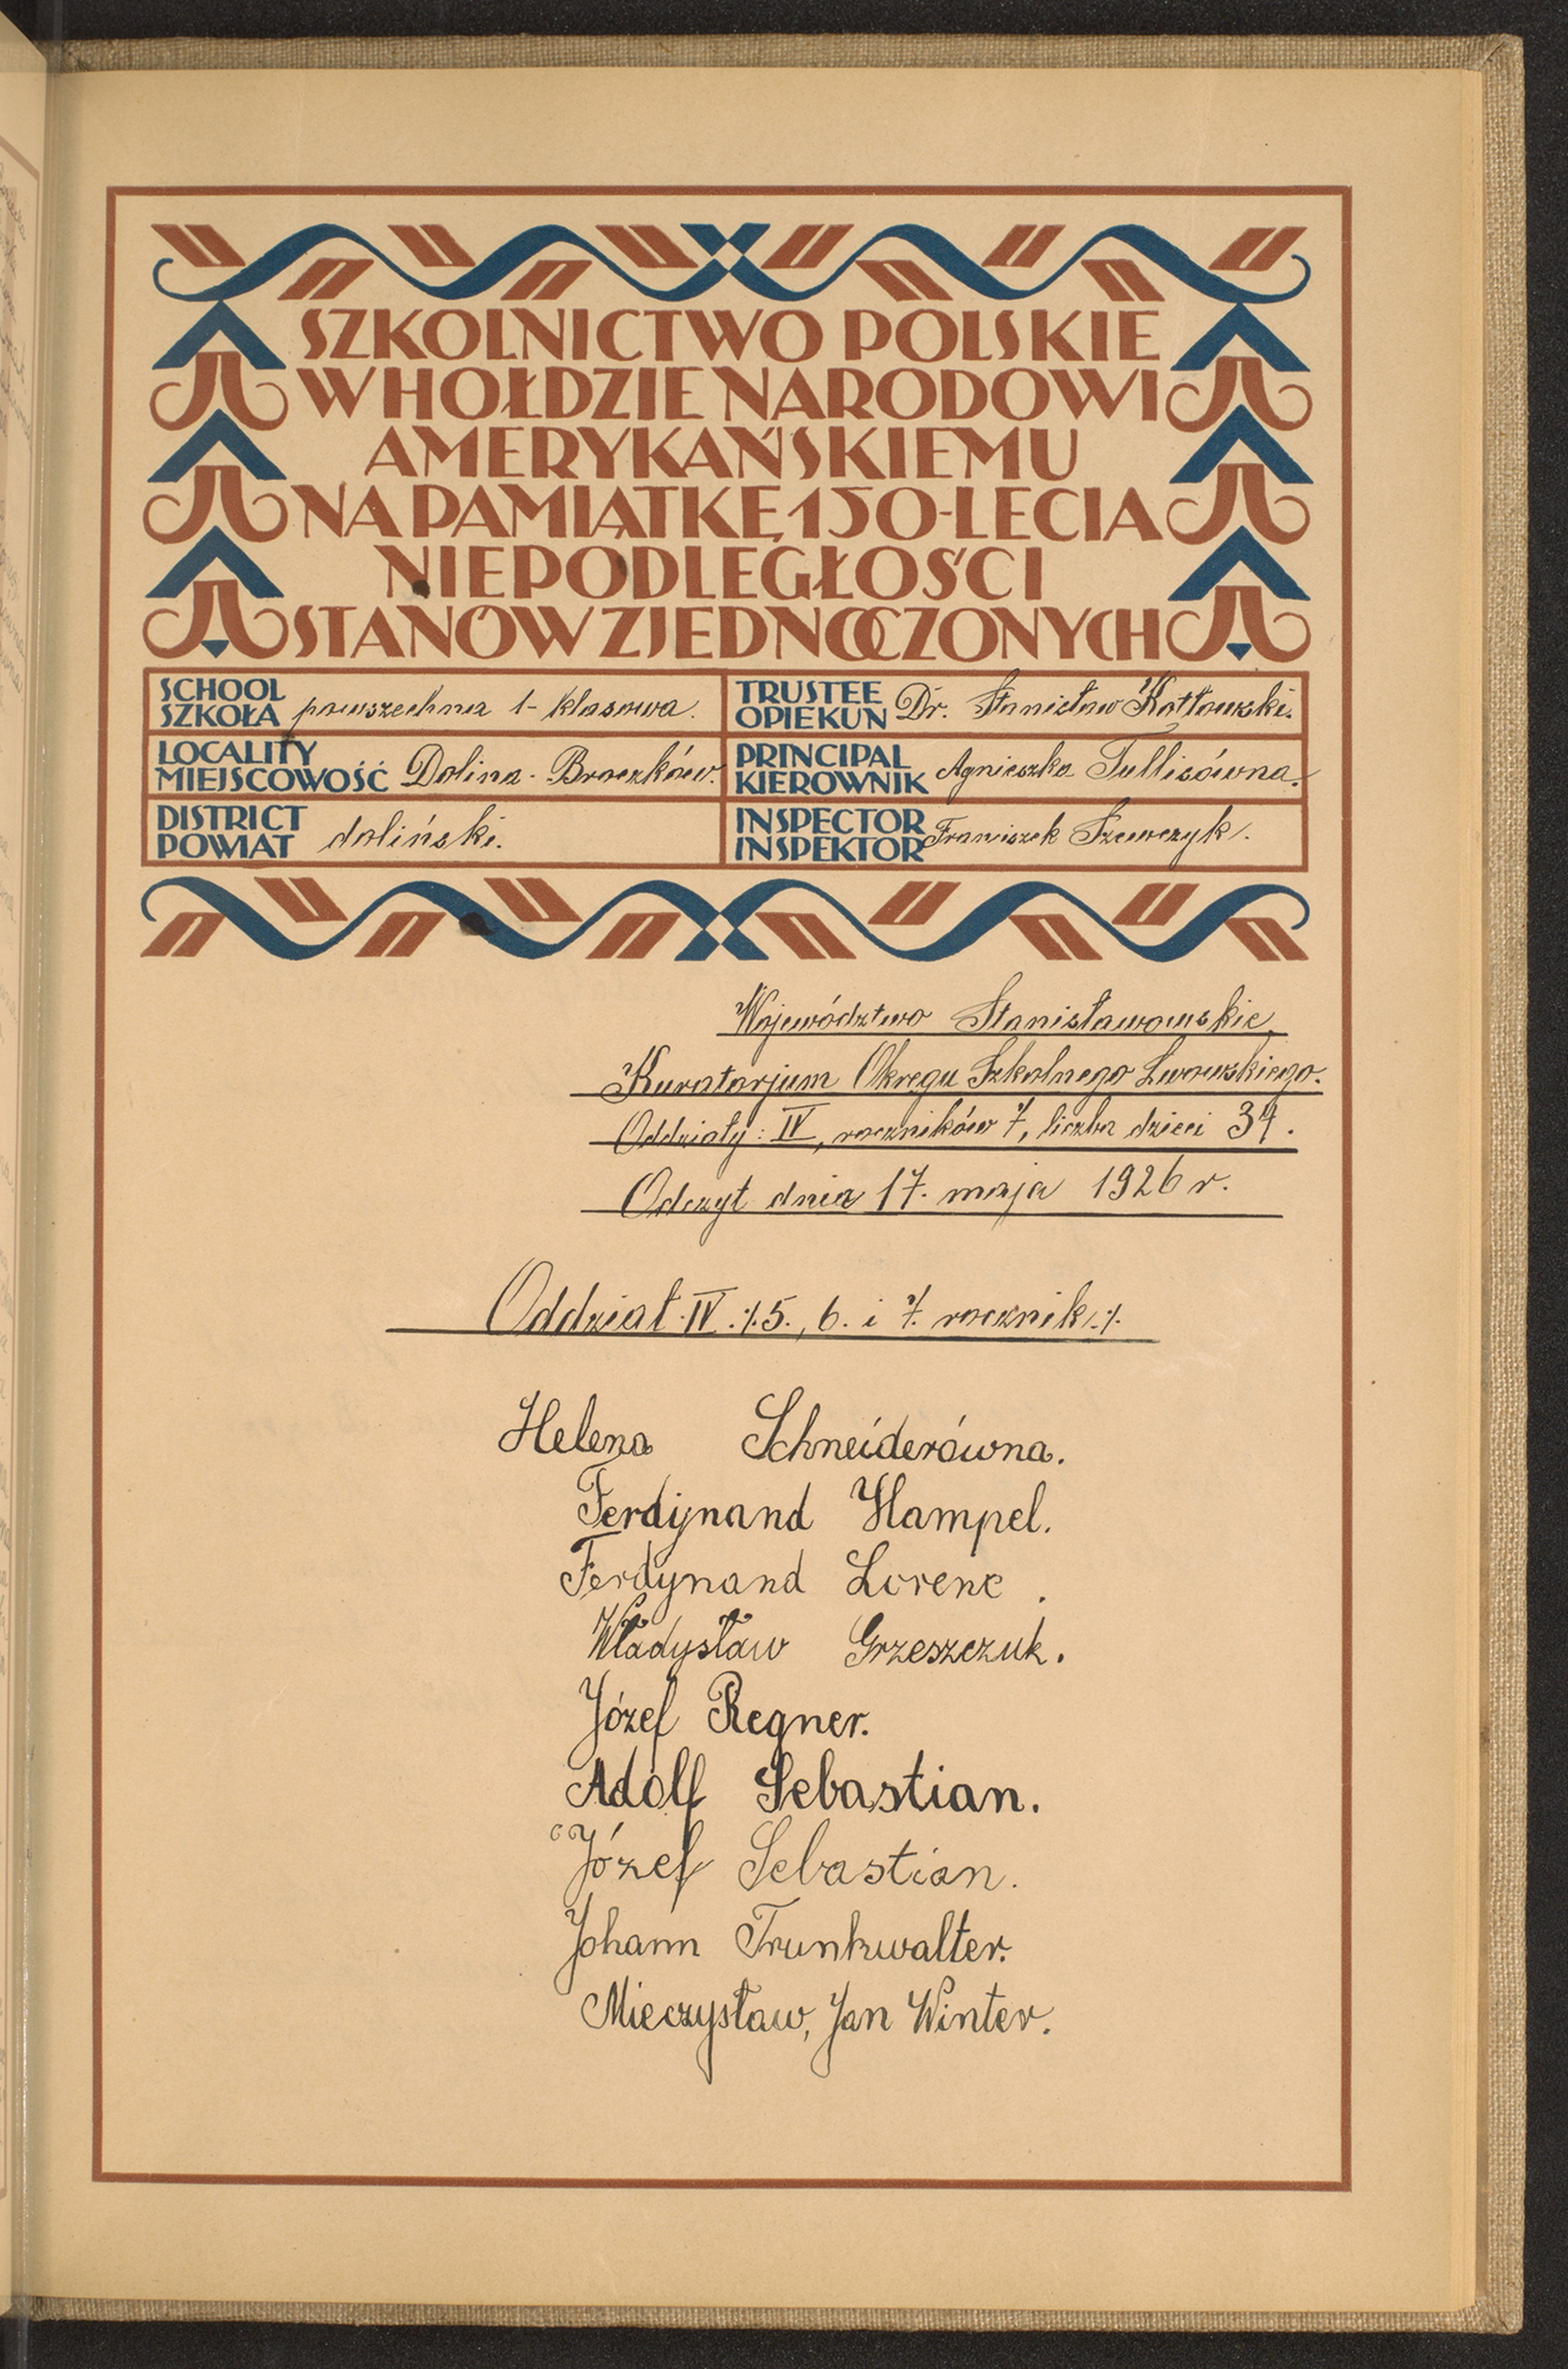 SZKOLNICTWO POLSKIE
W HOŁDZIE NARODOWI
AMERYKAŃSKIEMU
NA PAMIĄTKĘ 150-LECIA
NIEPODLEGŁOŚCI
STANÓW ZJEDNOCZONYCH
SCHOOL
SZKOŁA powszechna 1-klasowa.
TRUSTEE
OPIEKUN Dr. Stanisław Kotłowski.
LOCALITY
MIEJSCOWOŚĆ Dolina-Broczków.
PRINCIPAL
KIEROWNIK Agnieszka Tullisówna.
DISTRICT
POWIAT doliński.
INSPECTOR
INSPEKTOR Franciszek Szewczyk.
Województwo Stanisławowskie.
Kuratorjum Okręgu Szkolnego Lwowskiego.
Oddziały: IV, roczników 7, liczba dzieci 34.
Odczyt dnia 17. maja 1926 r.
Oddział IV ./. 5., 6. i 7. rocznik ./.
Helena Schneiderówna.
Ferdynand Hampel.
Ferdynand Lorenc.
Władysław Grzeszczuk.
Józef Regner.
Adolf Sebastian.
Józef Sebastian.
Johann Trunkwalter.
Mieczysław, Jan Winter.